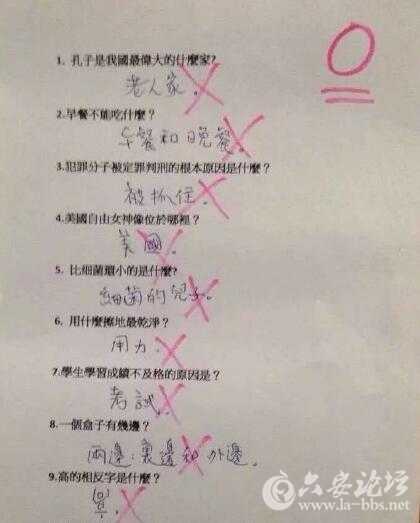 0
1. 孔子是我國最偉大的什麼家?
老人家。
2.早餐不能吃什麼？
午餐和晚餐。
3.犯罪分子被定罪判刑的根本原因是什麼？
被抓住。
4.美國自由女神像位於哪裡？
美國。
5. 比細菌還小的是什麼?
細菌的兒子。
6. 用什麼擦地最乾淨？
用力。
7.學生學習成績不及格的原因是？
考試。
8.一個盒子有幾邊？
兩邊:裏邊和外邊。
9.高的相反字是什麼？
六安论坛
www.la-bbs.net